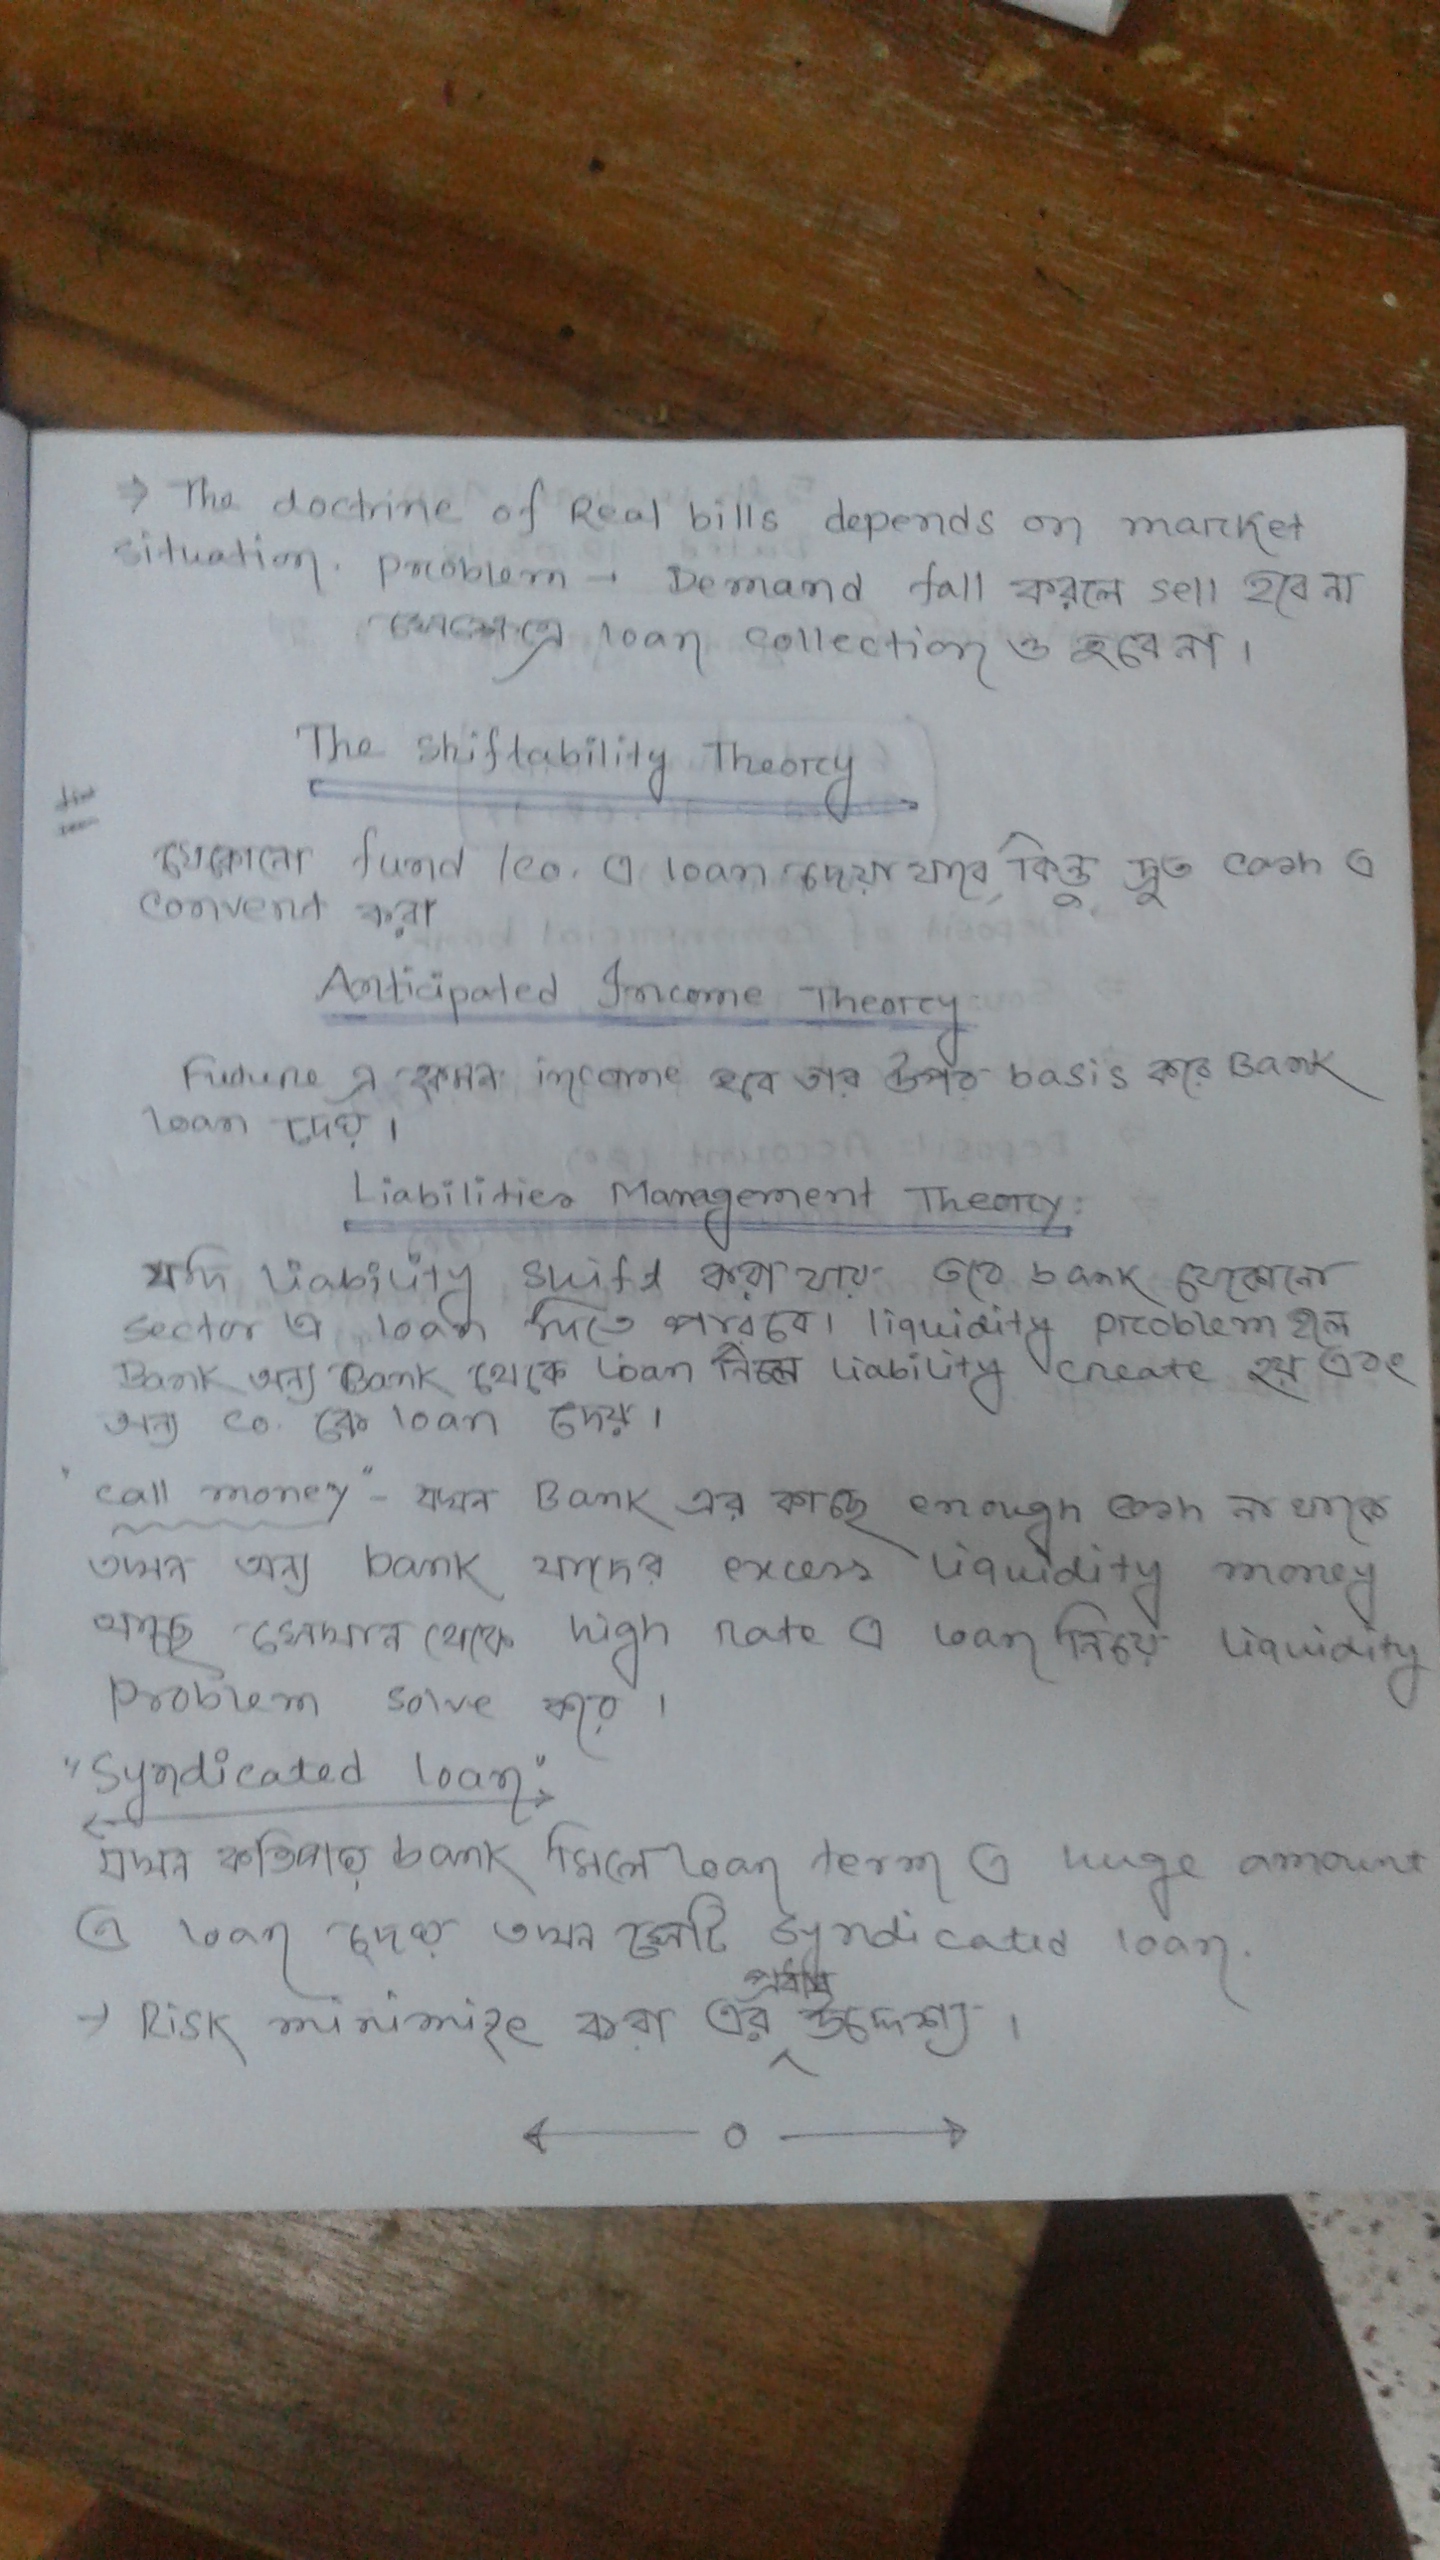 ⇒ The doctrine of Real bills depends on market
situation. Problem → Demand fall করলে sell হবে না
সেক্ষেত্রে loan collection ও হবে না।
The Shiftability Theory
যেকোনো fund /co. এ loan দেয়া যাবে, কিন্তু দ্রুত cash এ
convert করা
Anticipated Income Theory
Future এ কেমন income হবে তার উপর basis করে Bank
loan দেয়।
Liabilities Management Theory:
যদি liability shift করা যায় তবে bank যেকোনো
sector এ loan দিতে পারবে। liquidity problem হলে
Bank অন্য Bank থেকে loan নিলে liability create হয় এবং
অন্য co. কে loan দেয়।
"call money" - যখন Bank এর কাছে enough cash না থাকে
তখন অন্য bank যাদের excess liquidity money
আছে সেখান থেকে high rate এ loan নিয়ে liquidity
problem solve করে।
"Syndicated loan":
যখন কতিপয় bank মিলে loan term এ huge amount
এ loan দেয় তখন সেটি syndicated loan.
প্রধান
→ Risk minimize করা এর ^ উদ্দেশ্য।
← o →